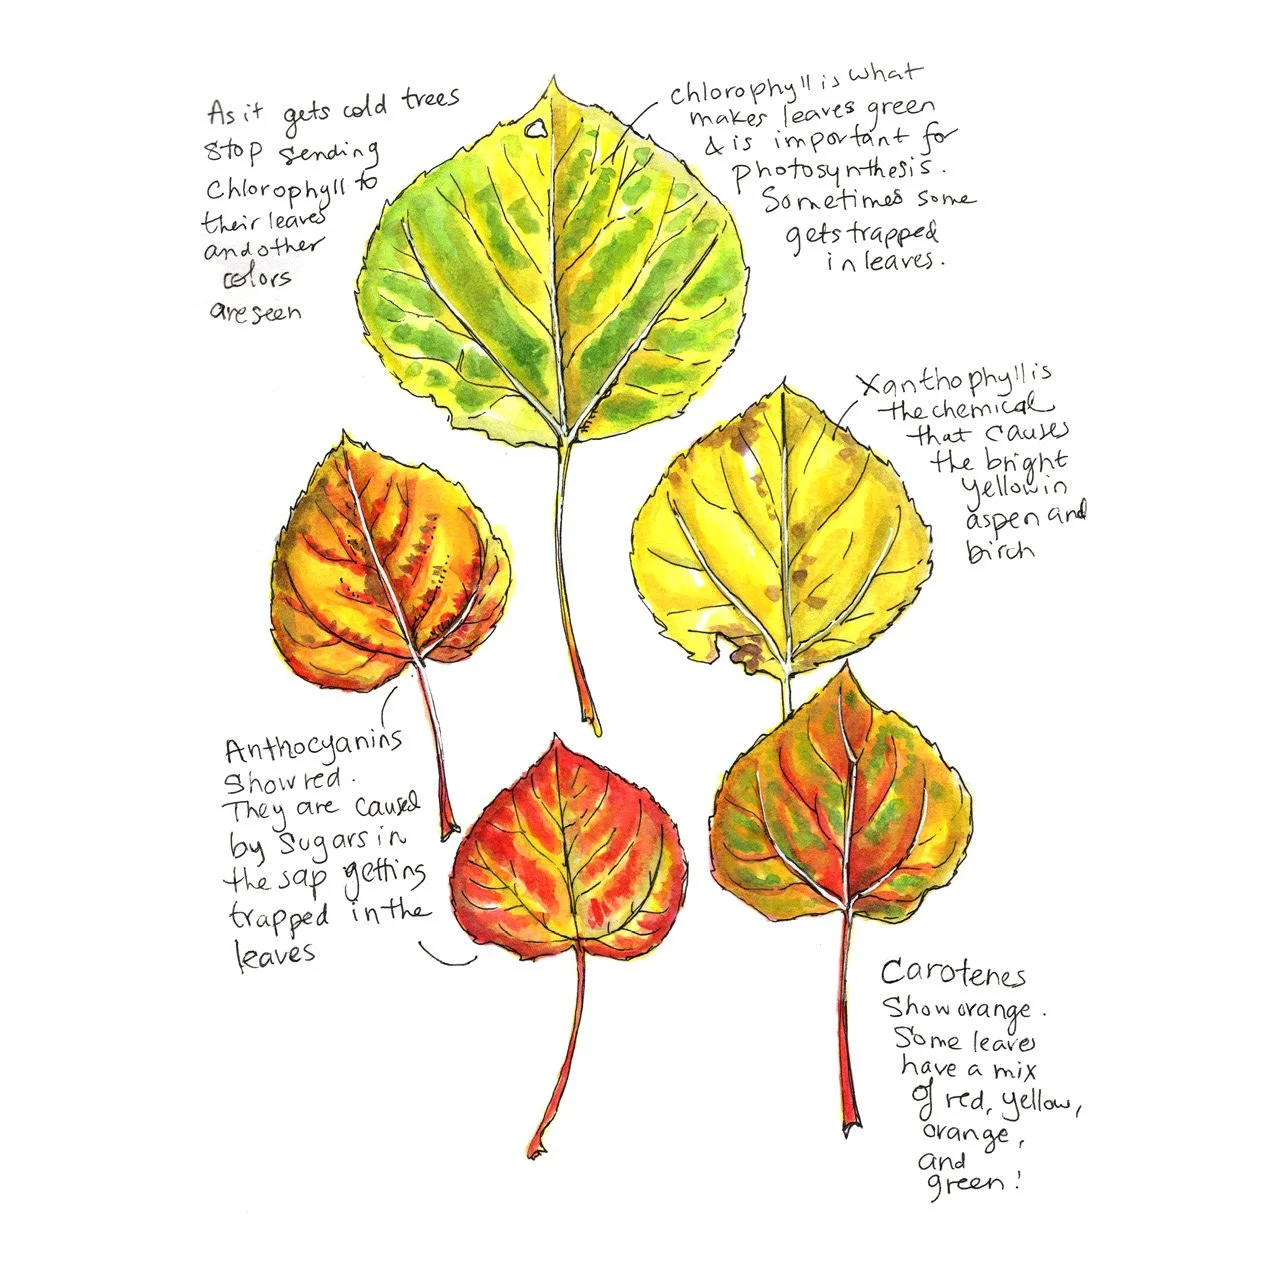 As it gets cold trees
stop sending
Chlorophyll to
their leaves
and other
colors
are seen
Chlorophyll is what
makes leaves green
& is important for
photosynthesis.
Sometimes some
gets trapped
in leaves.
Xanthophyll is
the chemical
that causes
the bright
yellow in
aspen and
birch
Anthocyanins
Show red.
They are caused
by Sugars in
the sap getting
trapped in the
leaves
Carotenes
Show orange.
Some leaves
have a mix
of red, yellow,
orange,
and
green!